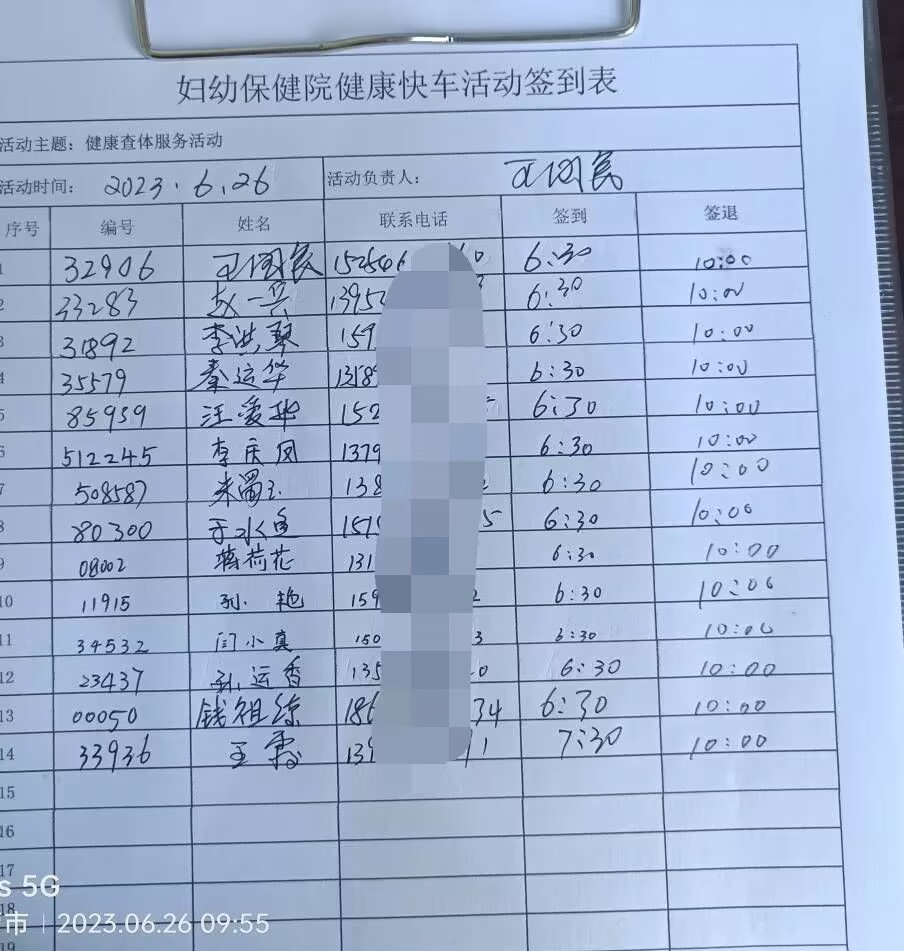 妇幼保健院健康快车活动签到表
活动主题：健康查体服务活动
活动时间： 2023.6.26 活动负责人： 王国民
序号 编号 姓名 联系电话 签到 签退
1 32906 王国民 6:30 10:00
2 33283 赵一兵 1395 6:30 10:00
3 31892 李洪琴 159 6:30 10:00
4 35579 秦运华 1358 6:30 10:00
5 85959 汪爱华 152 6:30 10:00
6 512245 李庆凤 1379 6:30 10:00
7 508587 138 6:30 10:00
8 80300 于水鱼 151 5 6:30 10:00
9 08002 蒋荷花 131 6:30 10:00
10 11915 孙艳 159 2 6:30 10:00
11 34532 闫小真 150 3 6:30 10:00
12 23437 孙运香 135 0 6:30 10:00
13 00050 钱祖综 186 34 6:30 10:00
14 33936 王霞 139 1 7:30 10:00
15
16
17
18
19
s 5G
市 | 2023.06.26 09:55